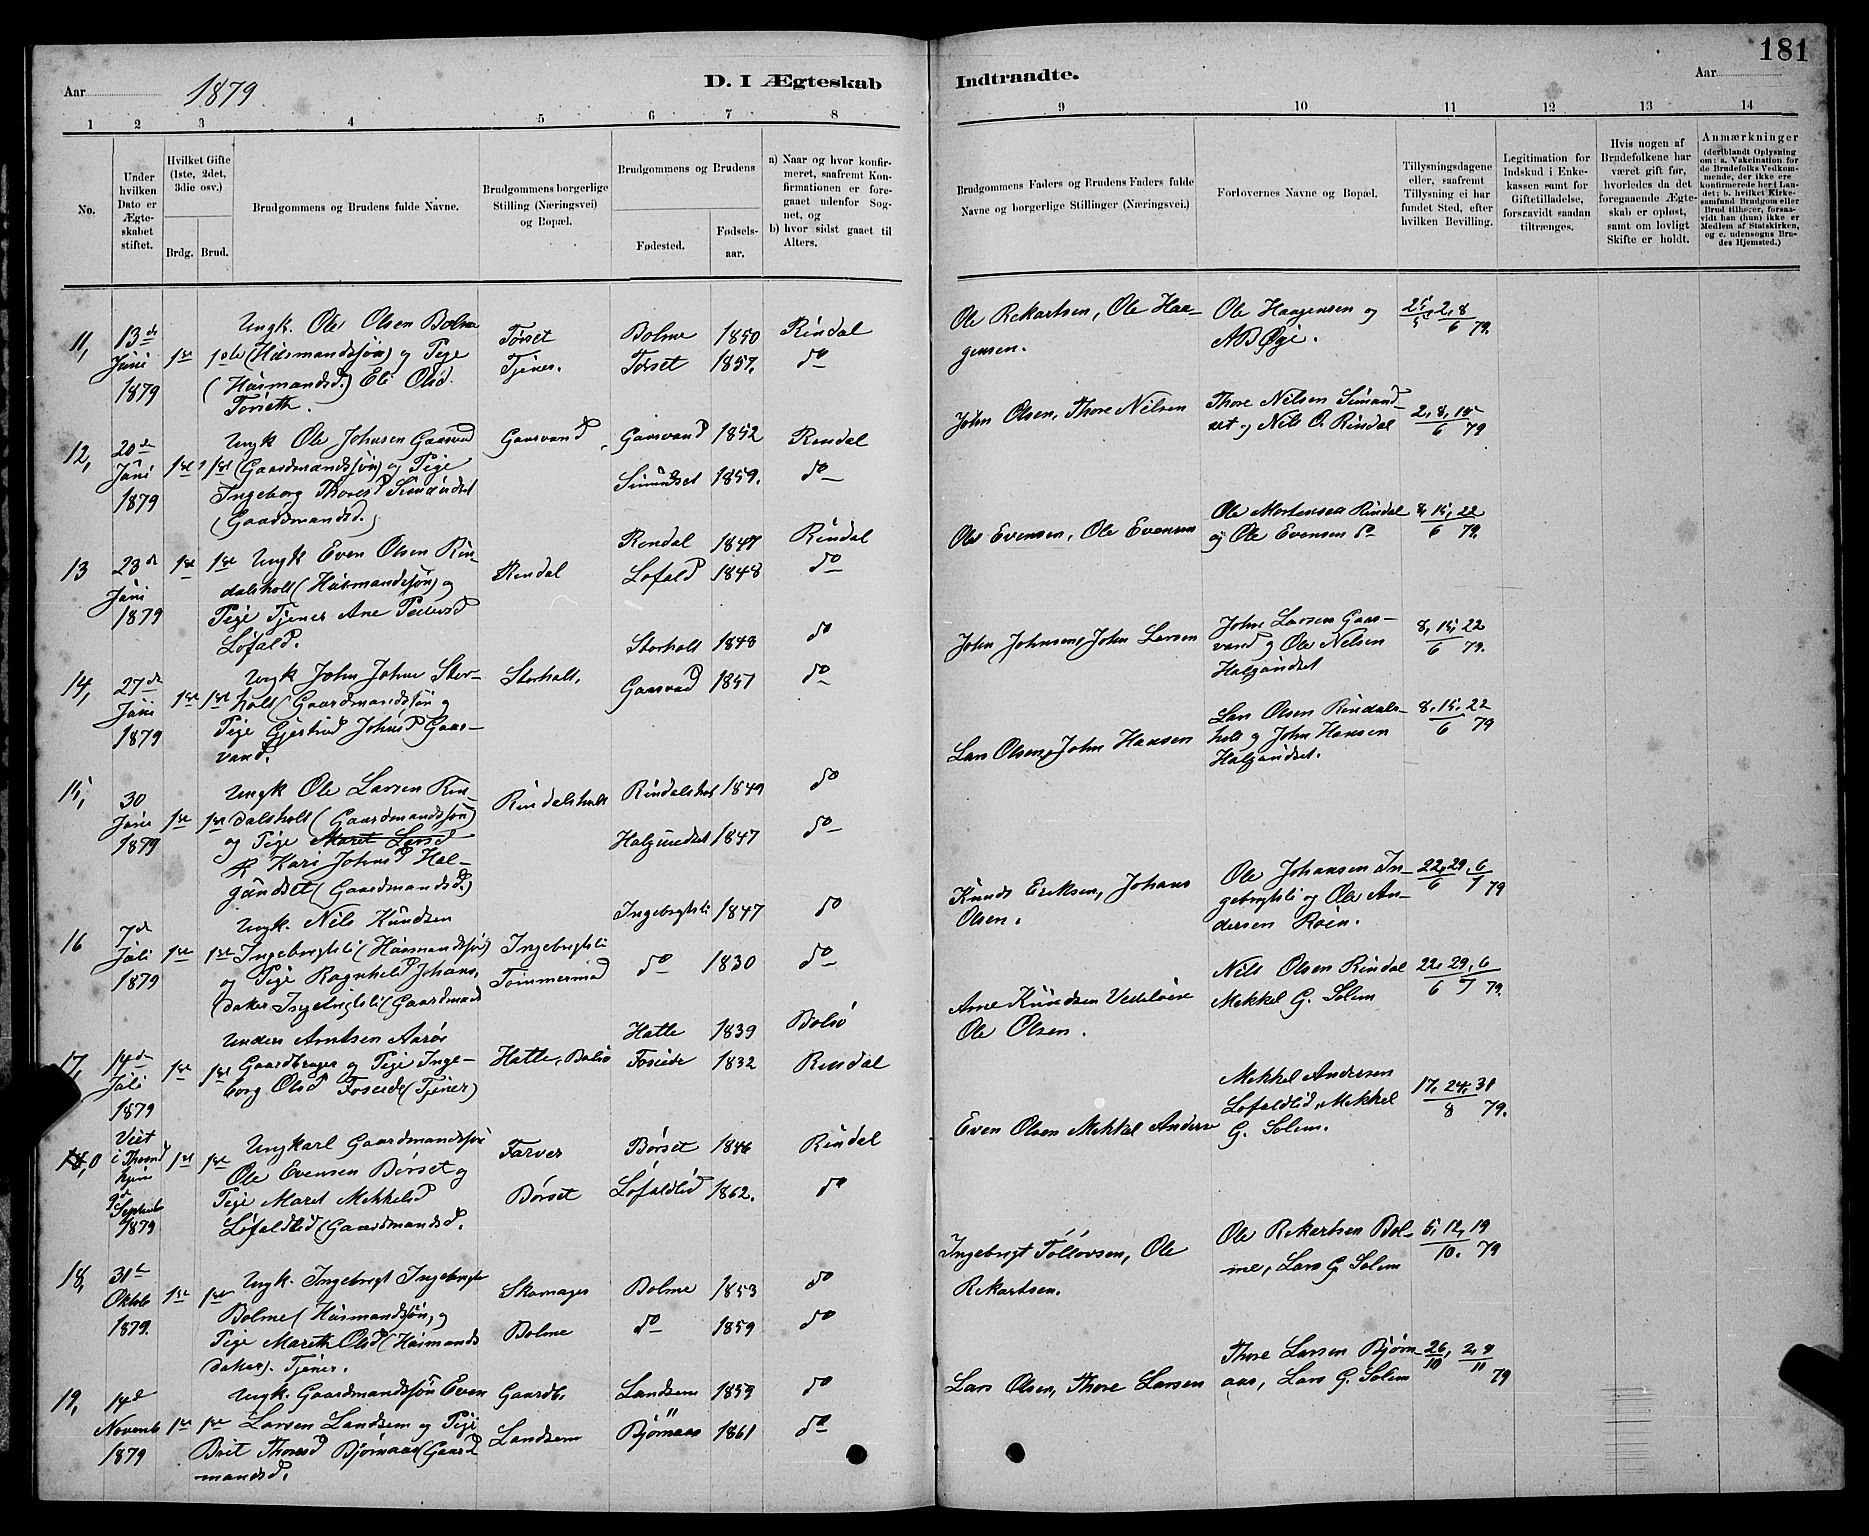 181
Aar 1879.
D. I Ægteskab Indtraadte.
Aar
1 2 3 4 5 6 7 8 9 10 11 12 13 14
No.
Under hvilken Dato er Ægteskabet stiftet.
Hvilket Gifte (1ste, 2det, 3die osv.)
Brdg. Brud.
Brudgommens og Brudens fulde Navne.
Brudgommens borgerlige Stilling (Næringsvei) og Bopæl.
Brudgommens og Brudens
Fødested.
Fødselsaar.
a) Naar og hvor konfirmeret, saafremt Konfirmationen er foregaaet udenfor Sognet, og
b) hvor sidst gaaet til Alters.
Brudgommens Faders og Brudens Faders fulde Navne og borgerlige Stillinger (Næringsvei.)
Forlovernes Navne og Bopæl.
Tillysningsdagene eller, saafremt Tillysning ei har fundet Sted, efter hvilken Bevilling.
Legitimation for Indskud i Enkekassen samt for Giftetilladelse, forsaavidt saadan tiltrænges.
Hvis nogen af Brudefolkene har været gift før, hvorledes da det foregaaende Ægteskab er opløst, samt om lovligt Skifte er holdt.
Anmærkninger
(deriblandt Oplysning om: a. Vakcination for de Brudefolks Vedkommende, der ikke ere konfirmerede her i Landet; b. hvilket Kirkesamfund Brudgom eller Brud tilhører, forsaavidt han (hun) ikke er Medlem af Statskirken, og c. udensogns Brudes Hjemsted.)
11, 13de Juni 1879 1ste 1ste
Ungk. Ole Olsen Bolme
(Husmandssøn) og Pige
(Husmandsd.) Eli Olsd.
Torseth.
Torset
Tjener.
Bolme 1850 Rindal
Torset 1857. do
Ole Rekartsen, Ole Haagensen.
Ole Haagensen og
N B Øye.
25/5, 2, 8/6 79.
12, 20de Juni 1879 1ste 1ste
Ungk Ole Johnsen Gaasvad
(Gaardmandssøn) og Pige
Ingeborg Thoresd Simundset
(Gaardmandsd.)
Gaasvand,
Gaasvand 1852 Rindal
Simundset 1859. do
John Olsen, Thore Nilsen
Thore Nilsen Simundset og Nils O. Rindal
2, 8, 15/6 79
13 23de Juni 1879 1ste 1ste
Ungk Even Olsen Rindalsholt (Husmandssøn) og
Pige Tjener Ane Pedersd
Løfald.
Rindal
Rindal 1847 Rindal
Lofald 1848 do
Ole Evensen, Ole Evensen
Ole Mortensen Rindal
og Ole Evensen do
8, 15, 22/6 79.
14, 27de Juni 1879 1ste 1ste
Ungk John Johns Storholt (Gaardmandssøn og
Pige Gjertrud Johnsd Gaasvand.
Storholt.
Storholt 1848 do
Gaasvad 1851 do
John Johnsen, John Larsen
John Larsen Gaasvand og Ole Nilsen
Halgundset
8, 15, 22/6 79.
15, 30 Juni 1879 1ste 1ste
Ungk Ole Larsen Rindalsholt (Gaardmandssøn)
og Pige Maret Larsd
Kari Johnsd Halgundset (Gaardmandsd.)
Rindalsholt
Rindalshol 1849 do
Halgundset 1847 do
Lars Olsen, John Hansen
Lars Olsen Rindalsholt og John Hansen
Halgundset.
8, 15, 22/6 79
16 7de Juli 1879 1ste 1ste
Ungk. Nils Knudsen
Ingebrigtsli (Husmandssøn)
og Pige Ragnhild Johansdaker Ingebrigtsli (Gaardmand
Ingebrigtsli
Tømmermand
Ingebrigtsli 1847 do
do 1830 do
Knud Eriksen, Johans
Olsen.
Ole Johansen Ingebrigtsli og Ole Andersen Røen.
22, 29/6, 6/7 79
17, 14de Juli 1879 1ste 1ste
Anders Arntsen Aarøe
Gaardbruger og Pige Ingeborg Olsd Foseide (Tjener)
Hatle, Bolsø
Hatle 1839 Bolsø
Foseide 1832 Rindal
Arne Knudsen
Ole Olsen.
Nils Olsen Rindal
Mekkel G. Solem
22, 29/6, 6/7 79.
Viet i Throndhjem 9de Septemb 1879 1ste 1ste
Ungkarl Gaardmandssøn
Ole Evensen Børset og
Pige Maret Mekkelsd
Løfaldlid (Gaardmandsd.
Farver
Børset
Børset 1846 Rindal
Løfaldlid 1862. do
Even Olsen Mekkel Anders
Mekkel Andersen
Lofaldlid, Mekkel
G. Solem.
17, 24, 31/8 79.
18, 31te Oktob 1879. 1ste 1ste
Ungk. Ingebrigt Ingebrigts
Bolme (Husmandssøn, og
Pige Mareth Olsd (Husmandsdaker). Tjener.
Skomager
Bolme
Bolme 1853 do
do 1859 do
Ingebrigt Tollovsen, Ole
Rekartsen.
Ole Rekartsen Bolme, Lars G. Solem
5, 12, 19/10. 79
19, 14de Novemb 1879 1ste 1ste
Ungk. Gaardmandssøn Even
Larsen Landsem og Pige
Brit Thoresd Bjørnaas (Gaardmandsd.
Gaardb.
Landsem
Landsem 1859 do
Bjørnaas 1861 do
Lars Olsen, Thore Larsen
Thore Larsen Bjørnaas, Lars G. Solem
26/10, 2, 9/11 79